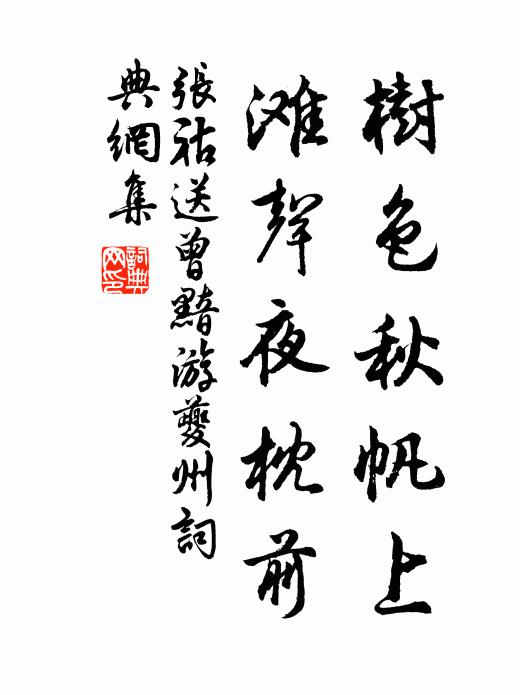 樹色秋帆上
滩聲夜枕前
張祜送曾黯游夔州詞
典網集
詞典網印